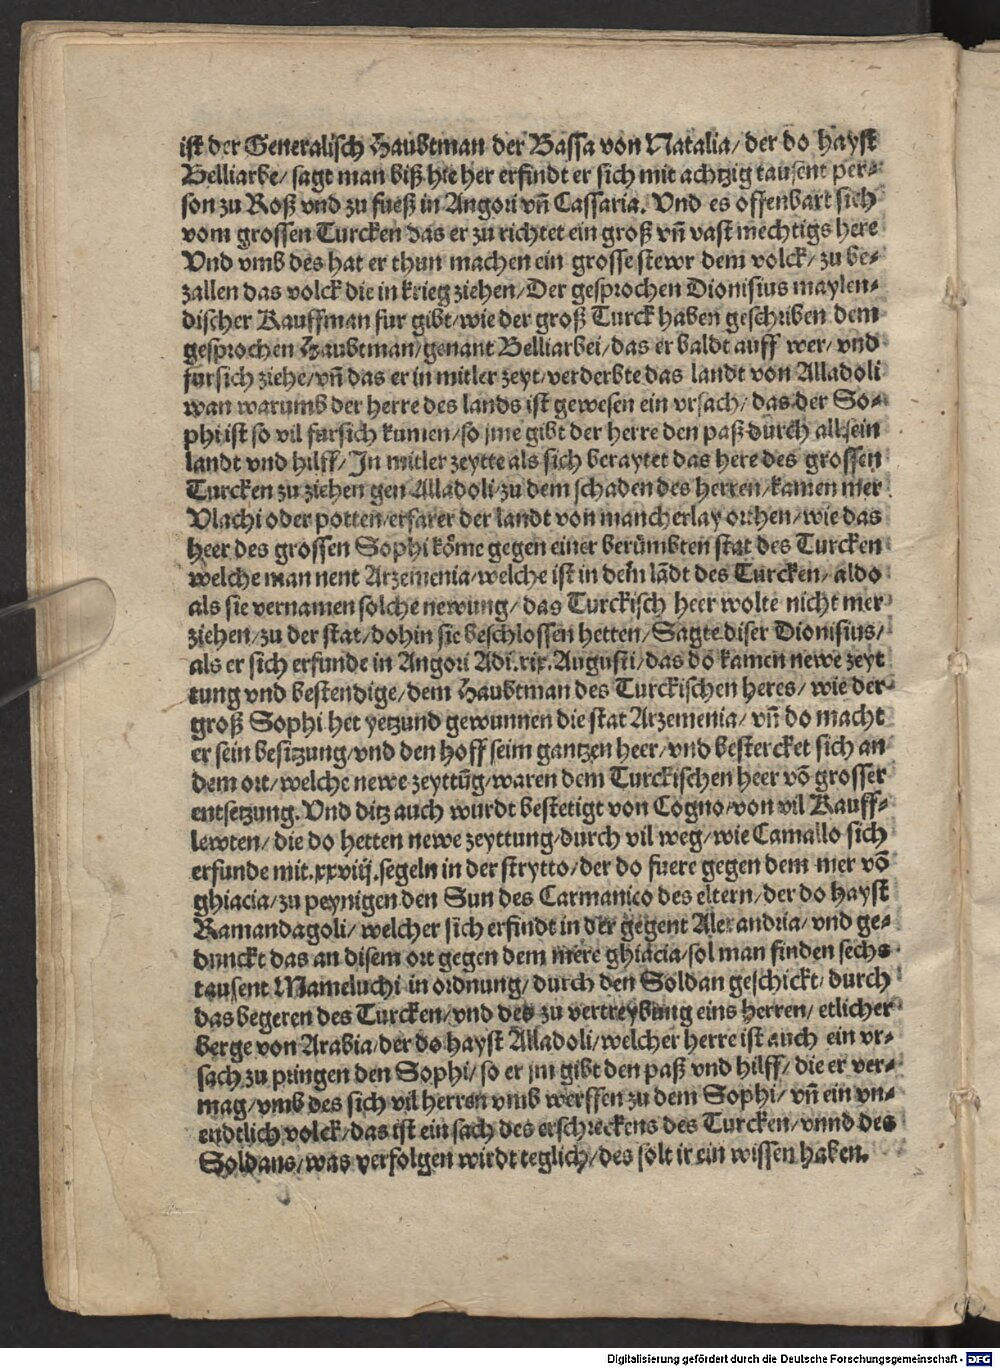 ist der Generalisch Haubtman der Bassa von Natalia/ der do hayst
Belliarbe/ sagt man biß hie her erfindt er sich mit achtzig tausent per⸗
son zu Roß vnd zu fueß in Angori vn̄ Cassaria. Vnd es offenbart sich
vom grossen Turcken das er zu richtet ein groß vn̄ vast mechtigs here
Vnd vmb des hat er thun machen ein grosse stewr dem volck/ zu be⸗
zallen das volck die in krieg ziehen/ Der gesprochen Dionisius maylen⸗
discher Kauffman fur gibt/ wie der groß Turck haben geschriben dem
gesprochen Haubtman/ genant Belliarbei/ das er baldt auff wer/ vnd
fursich ziehe/ vn̄ das er in mitler zeyt/ verderbte das landt von Alladoli
wan warumb der herre des lands ist gewesen ein vrsach/ das der So⸗
phi ist so vil fursich kumen/ so jme gibt der herre den paß durch all sein
landt vnd hilff/ Jn mitler zeytte als sich beraytet das here des grossen
Turcken zu ziehen gen Alladoli/ zu dem schaden des herren/ kamen mer
Vlachi oder potten/ erfarer der landt von mancherlay orthen/ wie das
heer des grossen Sophi kōme gegen einer berümbten stat des Turcken
welche man nent Arzemenia/ welche ist in dem lādt des Turcken/ aldo
als sie vernamen solche newung/ das Turckisch heer wolte nicht mer
ziehen/ zu der stat/ dohin sie beschlossen hetten/ Sagte diser Dionisius/
als er sich erfunde in Angori Adi.xix. Augusti/ das do kamen newe zeyt
tung vnd bestendige/ dem Haubtman des Turckischen heres/ wie der
groß Sophi het yetzund gewunnen die stat Arzemenia/ vn̄ do macht
er sein besitzung/ vnd den hoff seim gantzen heer/ vnd bestercket sich an
dem ort/ welche newe zeyttūg/ waren dem Turckischen heer vō grosser
entsetzung. Vnd ditz auch wurdt bestetigt von Cogno/ von vil Kauff⸗
lewten/ die do hetten newe zeyttung/ durch vil weg/ wie Camallo sich
erfunde mit.xxviij.segeln in der strytto/ der do fuere gegen dem mer vō
ghiacia/ zu peynigen den Sun des Carmanico des eltern/ der do hayst
Ramandagoli/ welcher sich erfindt in der gegent Alexandria/ vnd ge⸗
dunckt das an disem ort gegen dem mere ghiacia/ sol man finden sechs
tausent Mameluchi in ordnung/ durch den Soldan geschickt/ durch
das begeren des Turcken/ vnd des zu vertreybung eins herren/ etlicher
berge von Arabia/ der do hayst Alladoli/ welcher herre ist auch ein vr⸗
sach zu pringen den Sophi/ so er jm gibt den paß vnd hilff/ die er ver⸗
mag/ vmb des sich vil herren vmb werffen zu dem Sophi/ vn̄ ein vn⸗
endtlich volck/ das ist ein sach des erschreckens des Turcken/ vnnd des
Soldans/ was verfolgen wirdt teglich/ des solt ir ein wissen haben.
Digitalisierung gefördert durch die Deutsche Forschungsgemeinschaft - DFG